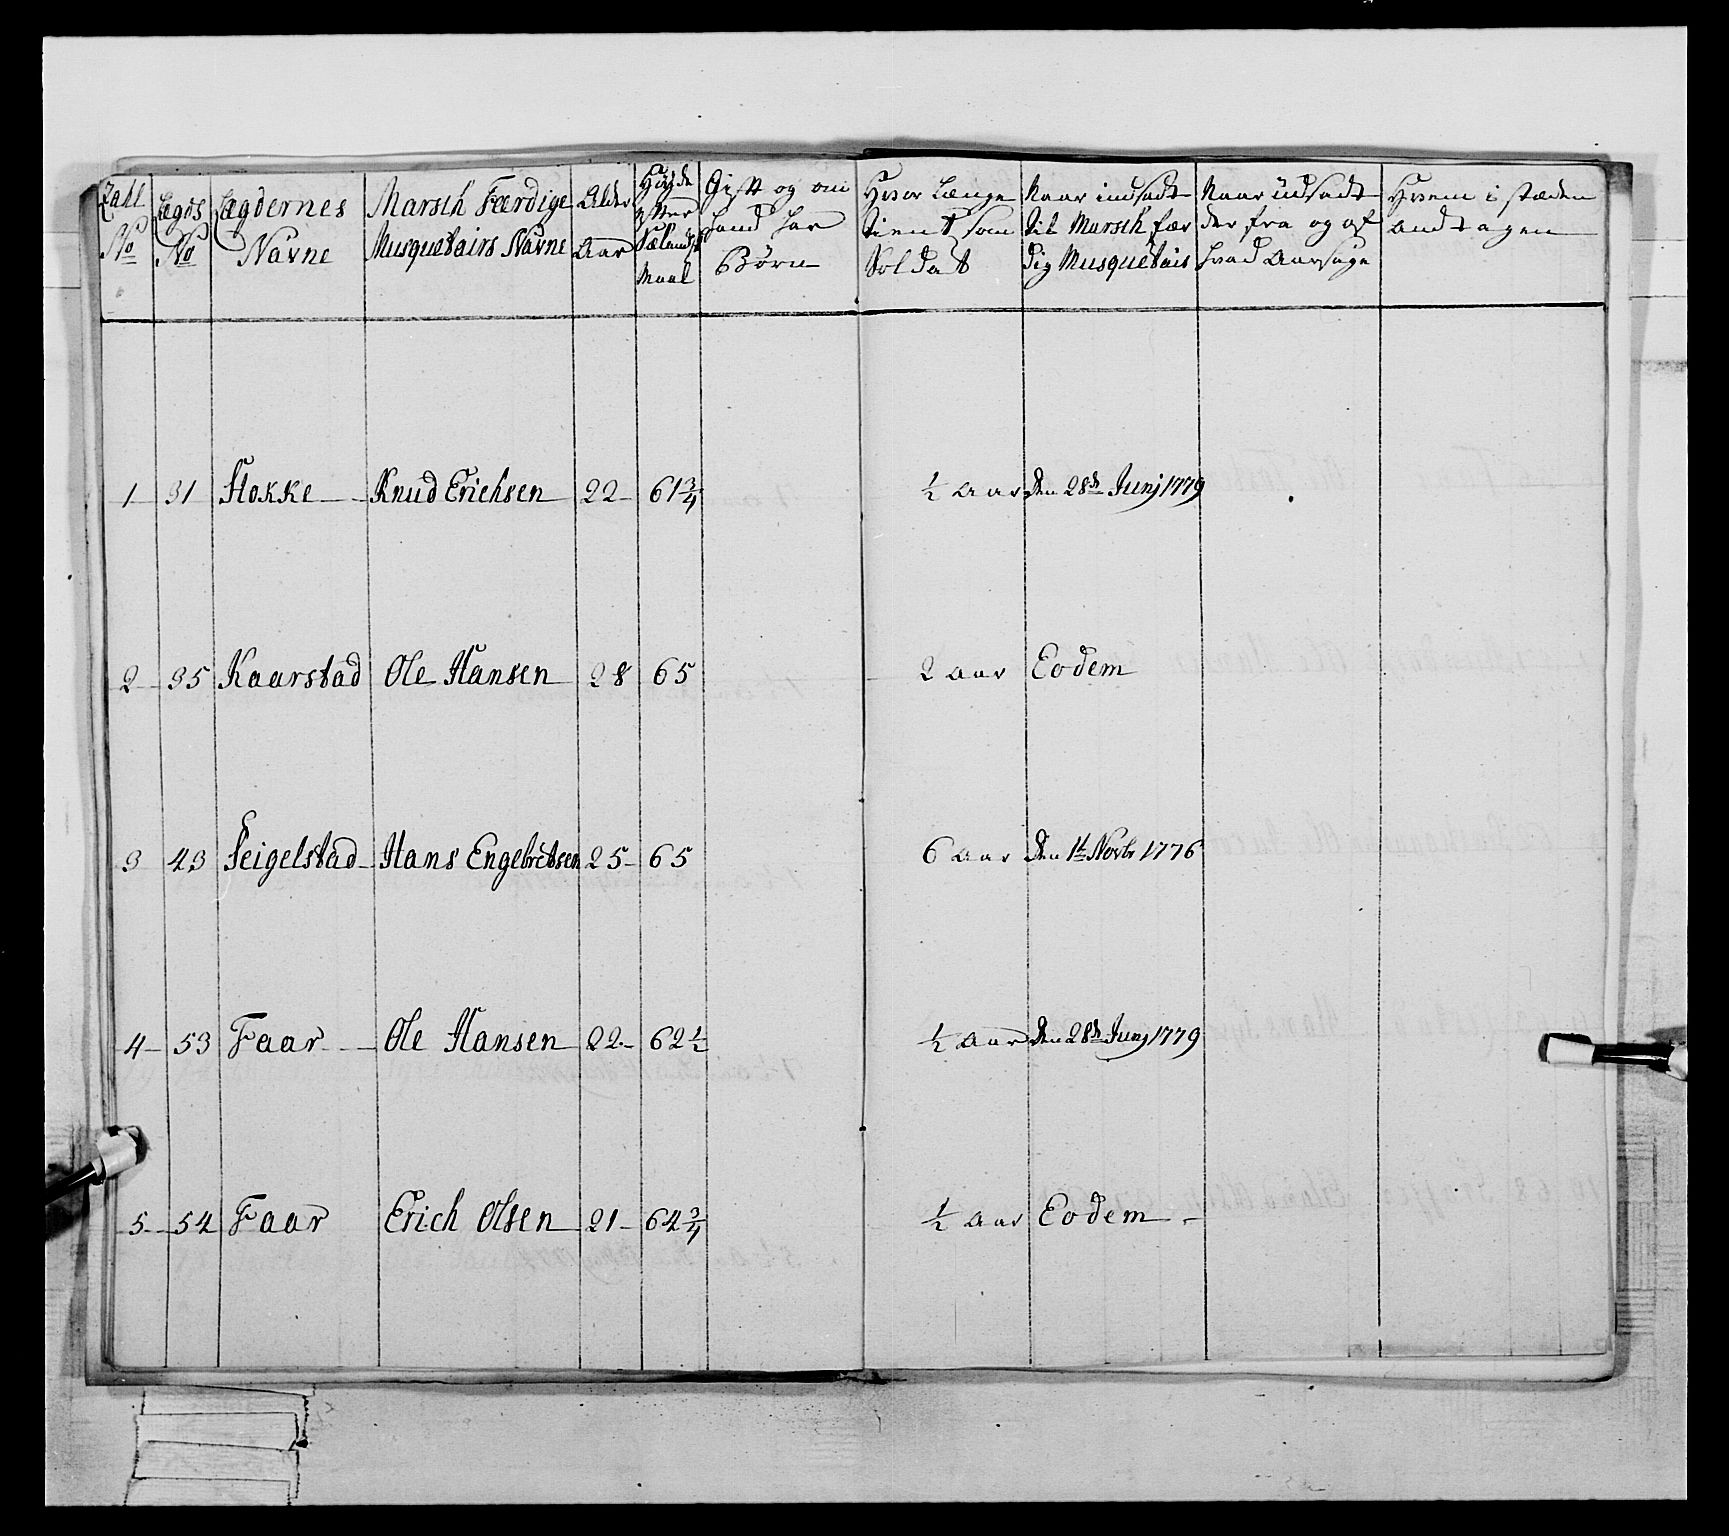 Zahl No
Lægds No
Lægdernes Navne
Marsch Færdige Musquetairs Navne
Alder Aar
Høyde efter Sælands Maal
Gift og om hand har Børn
Hvor Længe tient som Soldat
Naar indsadt til Marsch færdig Musquetair
Naar udsadt der fra og af hvad Aarsage
Hvem i stæden andtagen
1 31 Stokke Knud Erichsen 22 61 3/4 1/2 Aar den 28de Junj 1779
2 35 Kaarstad Ole Hansen 28 65 2 Aar Eodem
3 43 Seigelstad Hans Engebretsen 25 65 6 Aar den 1te Novbr 1776
4 53 Faar Ole Hansen 22 62 1/2 1/2 Aar den 28de Junj 1779
5 54 Faar Erich Olsen 21 64 3/4 1/2 Aar Eodem